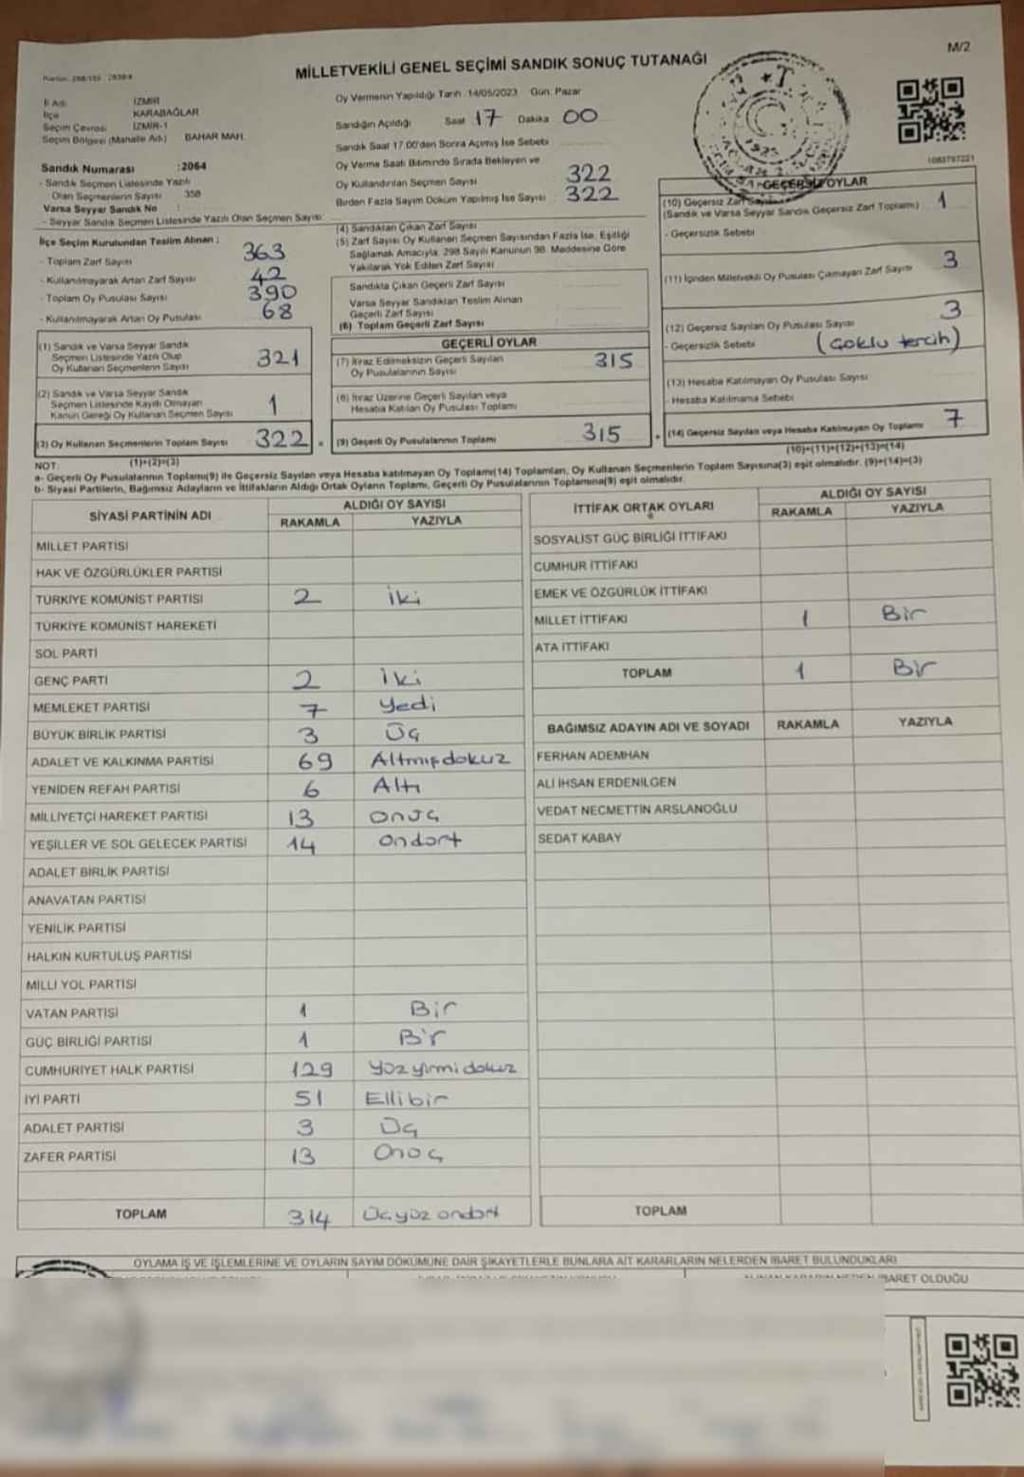 M/2
MİLLETVEKİLİ GENEL SEÇİMİ SANDIK SONUÇ TUTANAĞI
İl Adı : İZMİR
İlçe : KARABAĞLAR
Seçim Çevresi : İZMİR-1
Seçim Bölgesi (Mahalle Adı) : BAHAR MAH.
Sandık Numarası :2064
- Sandık Seçmen Listesinde Yazılı
Olan Seçmenlerin Sayısı : 358
Varsa Seyyar Sandık No :
- Seyyar Sandık Seçmen Listesinde Yazılı Olan Seçmen Sayısı :
Oy Vermenin Yapıldığı Tarih :14/05/2023 Gün: Pazar
Sandığın Açıldığı Saat 17 Dakika 00
Sandık Saat 17.00'den Sonra Açılmış İse Sebebi
Oy Verme Saati Bitiminde Sırada Bekleyen ve
Oy Kullandırılan Seçmen Sayısı 322
Birden Fazla Sayım Döküm Yapılmış İse Sayısı 322
1083797221
İlçe Seçim Kurulundan Teslim Alınan :
- Toplam Zarf Sayısı 363
- Kullanılmayarak Artan Zarf Sayısı 42
- Toplam Oy Pusulası Sayısı 390
- Kullanılmayarak Artan Oy Pusulası 68
(1) Sandık ve Varsa Seyyar Sandık
Seçmen Listesinde Yazılı Olup
Oy Kullanan Seçmenlerin Sayısı 321
(2) Sandık ve Varsa Seyyar Sandık
Seçmen Listesinde Kayıtlı Olmayan
Kanun Gereği Oy Kullanan Seçmen Sayısı 1
(3) Oy Kullanan Seçmenlerin Toplam Sayısı 322
(1)+(2)=(3)
(4) Sandıktan Çıkan Zarf Sayısı
(5) Zarf Sayısı Oy Kullanan Seçmen Sayısından Fazla İse, Eşitliği
Sağlamak Amacıyla, 298 Sayılı Kanunun 98. Maddesine Göre
Yakılarak Yok Edilen Zarf Sayısı
Sandıkta Çıkan Geçerli Zarf Sayısı
Varsa Seyyar Sandıktan Teslim Alınan
Geçerli Zarf Sayısı
(6) Toplam Geçerli Zarf Sayısı
GEÇERLİ OYLAR
(7) İtiraz Edilmeksizin Geçerli Sayılan
Oy Pusulalarının Sayısı 315
(8) İtiraz Üzerine Geçerli Sayılan veya
Hesaba Katılan Oy Pusulası Toplamı
(9) Geçerli Oy Pusulalarının Toplamı 315
GEÇERSİZ OYLAR
(10) Geçersiz Zarf Sayısı
(Sandık ve Varsa Seyyar Sandık Geçersiz Zarf Toplamı) 1
- Geçersizlik Sebebi
(11) İçinden Milletvekili Oy Pusulası Çıkmayan Zarf Sayısı 3
(12) Geçersiz Sayılan Oy Pusulası Sayısı 3
- Geçersizlik Sebebi (Çoklu tercih)
(13) Hesaba Katılmayan Oy Pusulası Sayısı
- Hesaba Katılmama Sebebi
(14) Geçersiz Sayılan veya Hesaba Katılmayan Oy Toplamı 7
(10)+(11)+(12)+(13)=(14)
NOT:
a- Geçerli Oy Pusulalarının Toplamı(9) ile Geçersiz Sayılan veya Hesaba katılmayan Oy Toplamı(14) Toplamları, Oy Kullanan Seçmenlerin Toplam Sayısına(3) eşit olmalıdır. (9)+(14)=(3)
b- Siyasi Partilerin, Bağımsız Adayların ve İttifakların Aldığı Ortak Oyların Toplamı, Geçerli Oy Pusulalarının Toplamına(9) eşit olmalıdır.
SİYASİ PARTİNİN ADI ALDIĞI OY SAYISI
RAKAMLA YAZIYLA
MİLLET PARTİSİ
HAK VE ÖZGÜRLÜKLER PARTİSİ
TÜRKİYE KOMÜNİST PARTİSİ 2 iki
TÜRKİYE KOMÜNİST HAREKETİ
SOL PARTİ
GENÇ PARTİ 2 iki
MEMLEKET PARTİSİ 7 Yedi
BÜYÜK BİRLİK PARTİSİ 3 Üç
ADALET VE KALKINMA PARTİSİ 69 Altmışdokuz
YENİDEN REFAH PARTİSİ 6 Altı
MİLLİYETÇİ HAREKET PARTİSİ 13 onüç
YEŞİLLER VE SOL GELECEK PARTİSİ 14 ondört
ADALET BİRLİK PARTİSİ
ANAVATAN PARTİSİ
YENİLİK PARTİSİ
HALKIN KURTULUŞ PARTİSİ
MİLLİ YOL PARTİSİ
VATAN PARTİSİ 1 Bir
GÜÇ BİRLİĞİ PARTİSİ 1 Bir
CUMHURİYET HALK PARTİSİ 129 Yüzyirmidokuz
İYİ PARTİ 51 Ellibir
ADALET PARTİSİ 3 Üç
ZAFER PARTİSİ 13 Onüç
TOPLAM 314 üçyüzondört
İTTİFAK ORTAK OYLARI ALDIĞI OY SAYISI
RAKAMLA YAZIYLA
SOSYALİST GÜÇ BİRLİĞİ İTTİFAKI
CUMHUR İTTİFAKI
EMEK VE ÖZGÜRLÜK İTTİFAKI
MİLLET İTTİFAKI 1 Bir
ATA İTTİFAKI
TOPLAM 1 Bir
BAĞIMSIZ ADAYIN ADI VE SOYADI RAKAMLA YAZIYLA
FERHAN ADEMHAN
ALİ İHSAN ERDENİLGEN
VEDAT NECMETTİN ARSLANOĞLU
SEDAT KABAY
TOPLAM
OYLAMA İŞ VE İŞLEMLERİNE VE OYLARIN SAYIM DÖKÜMÜNE DAİR ŞİKAYETLERLE BUNLARA AİT KARARLARIN NELERDEN İBARET BULUNDUKLARI
İBARET OLDUĞU